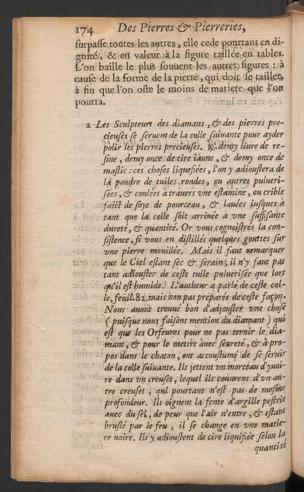 174 Des Pierres & Pierreries,
surpasse toutes les autres, elle cede pourtant en di-
gnité, & en valeur à la figure taillée en tables.
L'on baille le plus souuent les autres figures : à
cause de la forme de la pierre, qui doit se tailler,
à fin que l'on oste le moins de matiere que l'on
pourra.
2 Les Sculpteurs des diamans, & des pierres pre-
cieuses se seruent de la colle suiuante pour ayder
polir les pierres precieuses. demy liure de re-
sine, demy once de cire iaune, & demy once de
mastic : ces choses liquefiées, l'on y adioustera de
la poudre de tuiles rondes, ou autres pulueri-
sées, & coulées à trauers vne estamine, ou crible
faict de soye de pourceau, & lauées iusques à
tant que la colle soit arriuée à vne suffisante
dureté, & quantité. Or vous cognoistrés la con-
sistence, si vous en distillés quelques gouttes sur
vne pierre mouillée. Mais il faut remarquer
que le Ciel estant sec & serain, il n'y faut pas
tant adiouster de ceste tuile puluerisée que lors
qu'il est humide. L'autheur a parlé de ceste col-
le, feuil.82. mais non pas preparée de ceste façon.
Nous auons trouué bon d'adiouster vne chose
(puisque nous faisons mention du diamant) qui
est que les Orfeures pour ne pas ternir le dia-
mant, & pour le mettre auec seureté, & à pro-
pos dans le chaton, ont accoustumé de se seruir
de la colle suiuante. Ils jettent vn morceau d'yuoi-
re dans vn creuset, lequel ils couurent d'vn au-
tre creuset, qui pourtant n'est pas de mesme
profondeur. Ils oignent la fente d'argille pestrie
auec du sel, de peur que l'air n'entre, & estant
bruslé par le feu, il se change en vne matie-
re noire. Ils y adioustent de cire liquifiée selon la
quantité